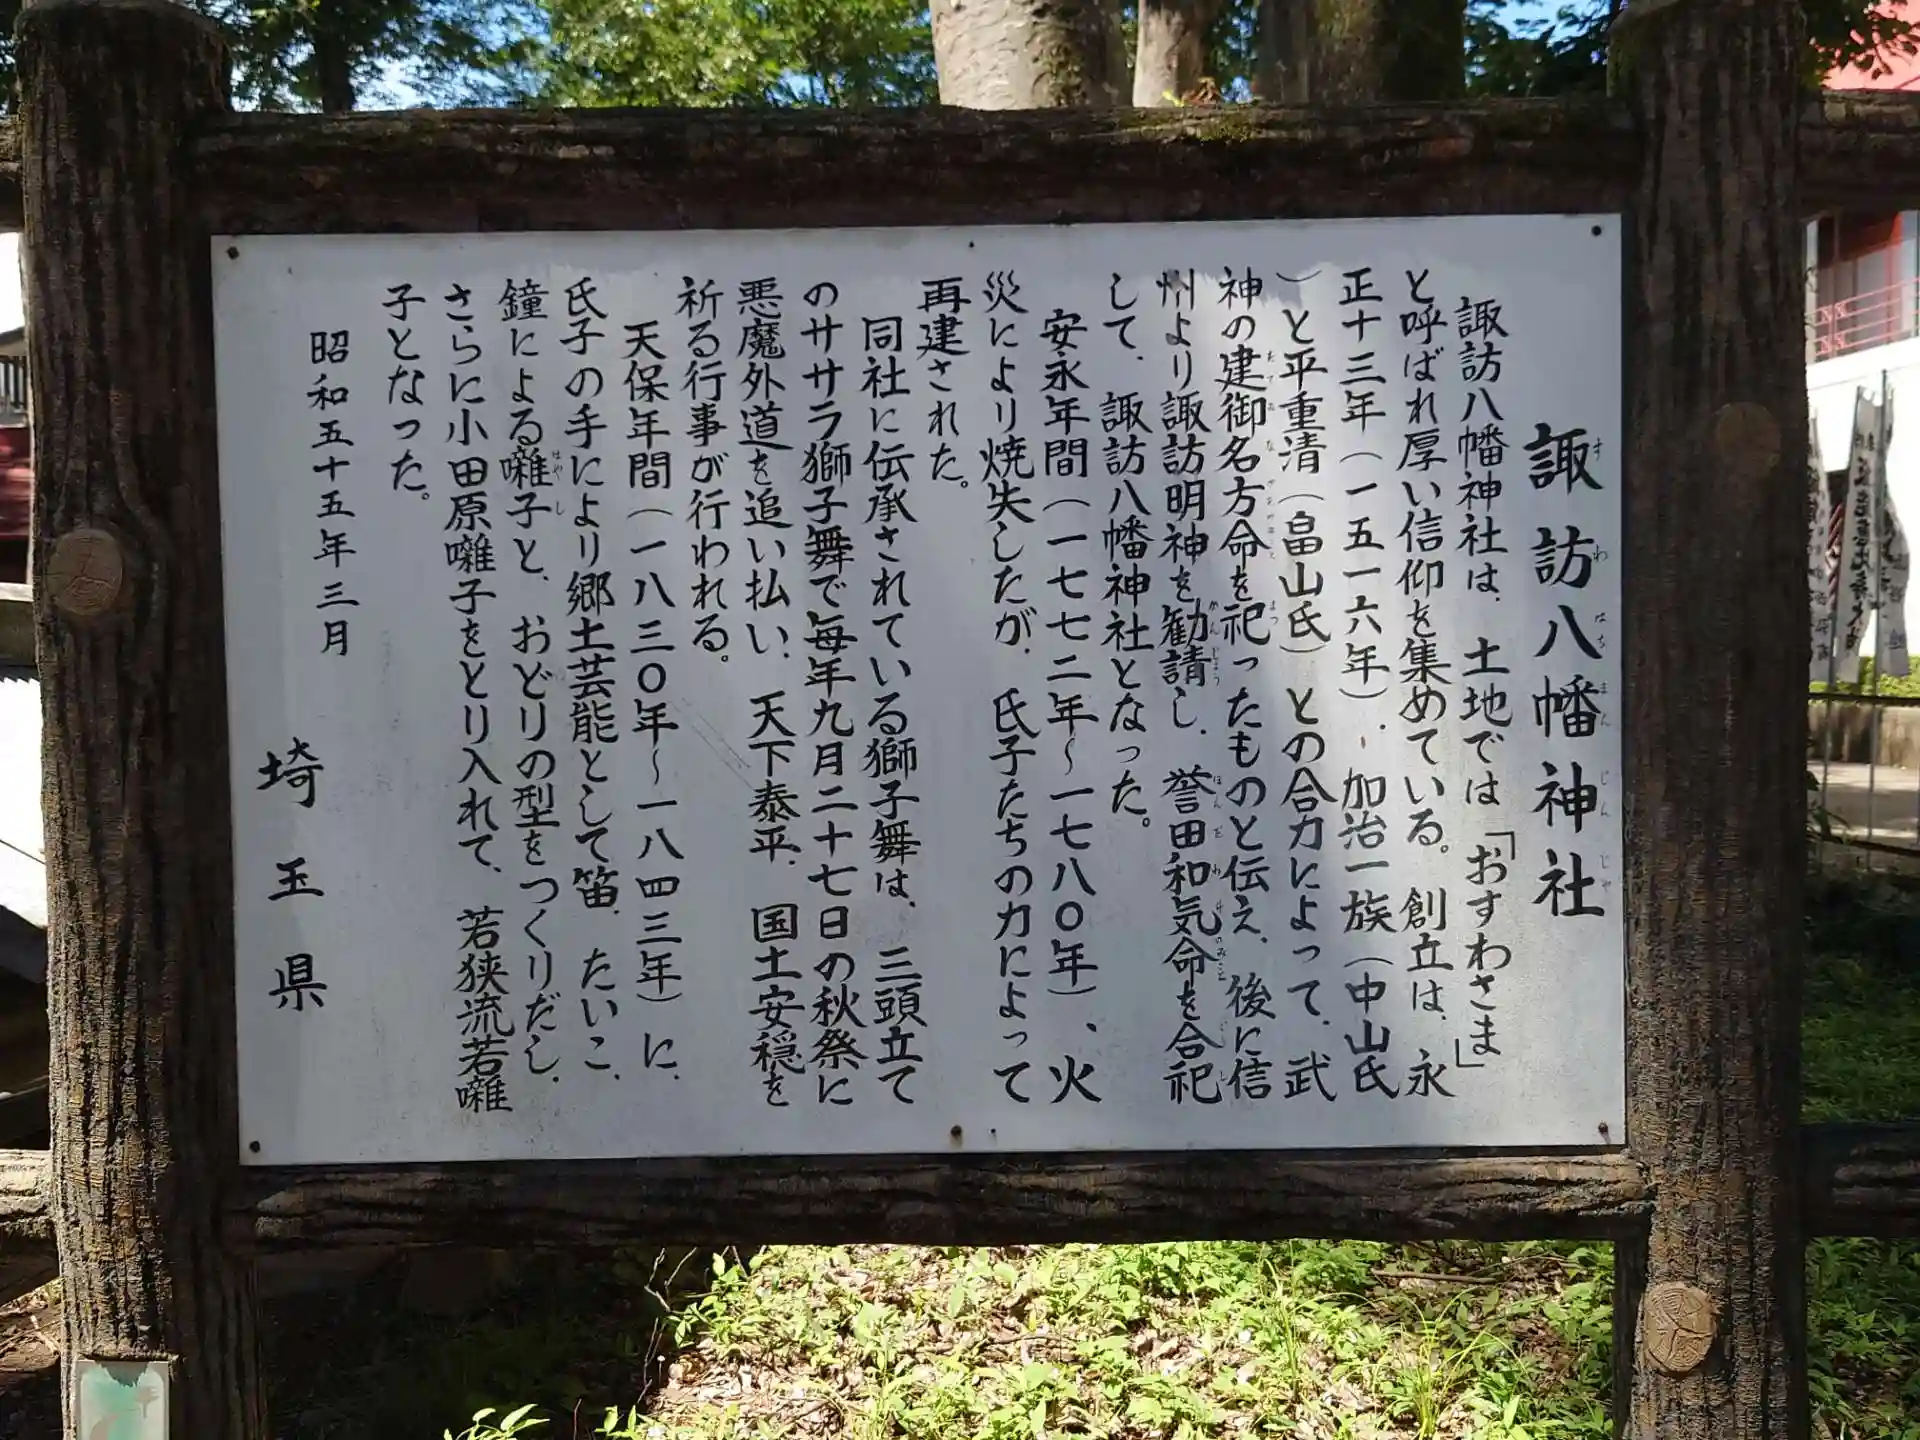 諏訪八幡神社
諏訪八幡神社は、土地では「おすわさま」
と呼ばれ厚い信仰を集めている。創立は、永
正十三年(一五一六年)、加治一族(中山氏
)と平重清(畠山氏)との合力によって、武
神の建御名方命を祀ったものと伝え、後に信
州より諏訪明神を勧請し、誉田和気命を合祀
して、諏訪八幡神社となった。
安永年間(一七七二年〜一七八〇年)、火
災により焼失したが、氏子たちの力によって
再建された。
同社に伝承されている獅子舞は、三頭立て
のササラ獅子舞で毎年九月二十七日の秋祭に
悪魔外道を追い払い、天下泰平、国土安穏を
祈る行事が行われる。
天保年間(一八三〇年〜一八四三年)に、
氏子の手により郷土芸能として笛、たいこ、
鐘による囃子と、おどりの型をつくりだし、
さらに小田原囃子をとり入れて、若狭流若囃
子となった。
昭和五十五年三月
埼玉県